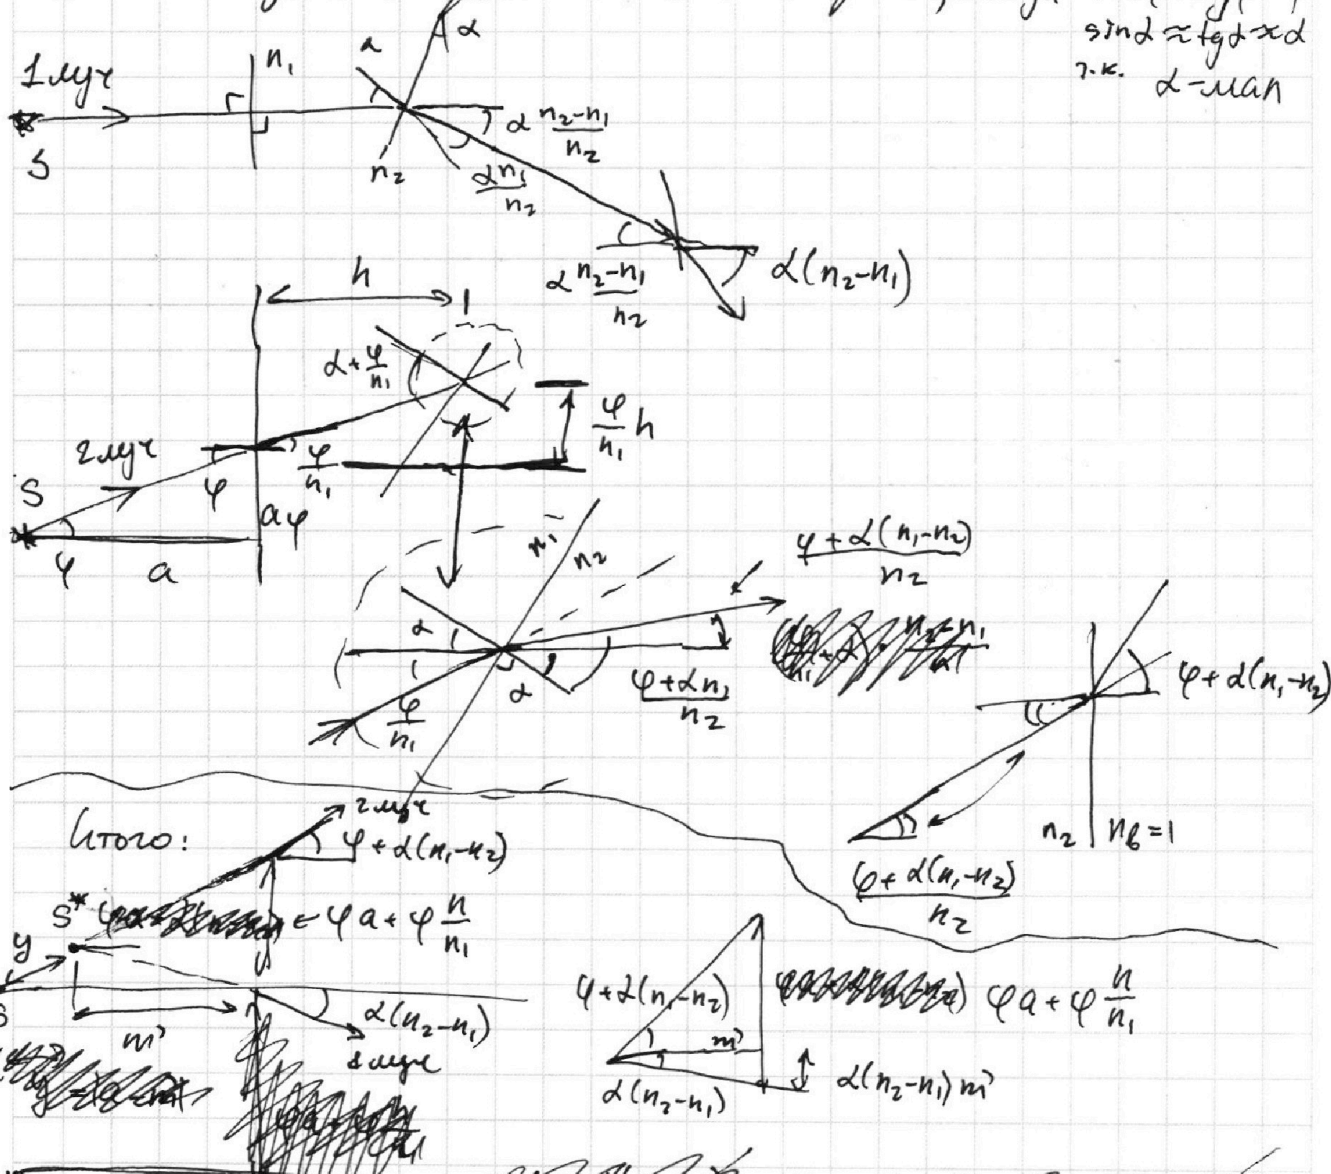 sinα ≈ tgα ≈ α
т.к. α - мал
1 луч
n₁
α
α
S
n₂
α (n₂-n₁)/n₂
αn₁/n₂
α (n₂-n₁)/n₂
α(n₂-n₁)
h
α + φ/n₁
2 луч
φ
φ/n₁
φ/n₁ h
S
φ
a
aφ
n₁
n₂
(φ + α(n₁-n₂))/n₂
α
φ/n₁
α
(φ + αn₁)/n₂
φ + α(n₁-n₂)
n₂ | nв = 1
(φ + α(n₁-n₂))/n₂
Итого:
2 луч
φ + α(n₁-n₂)
S*
φa + φ h/n₁
y
S
m
α(n₂-n₁)
1 луч
φ + α(n₁-n₂)
m
φa + φ h/n₁
α(n₂-n₁)
α(n₂-n₁)m